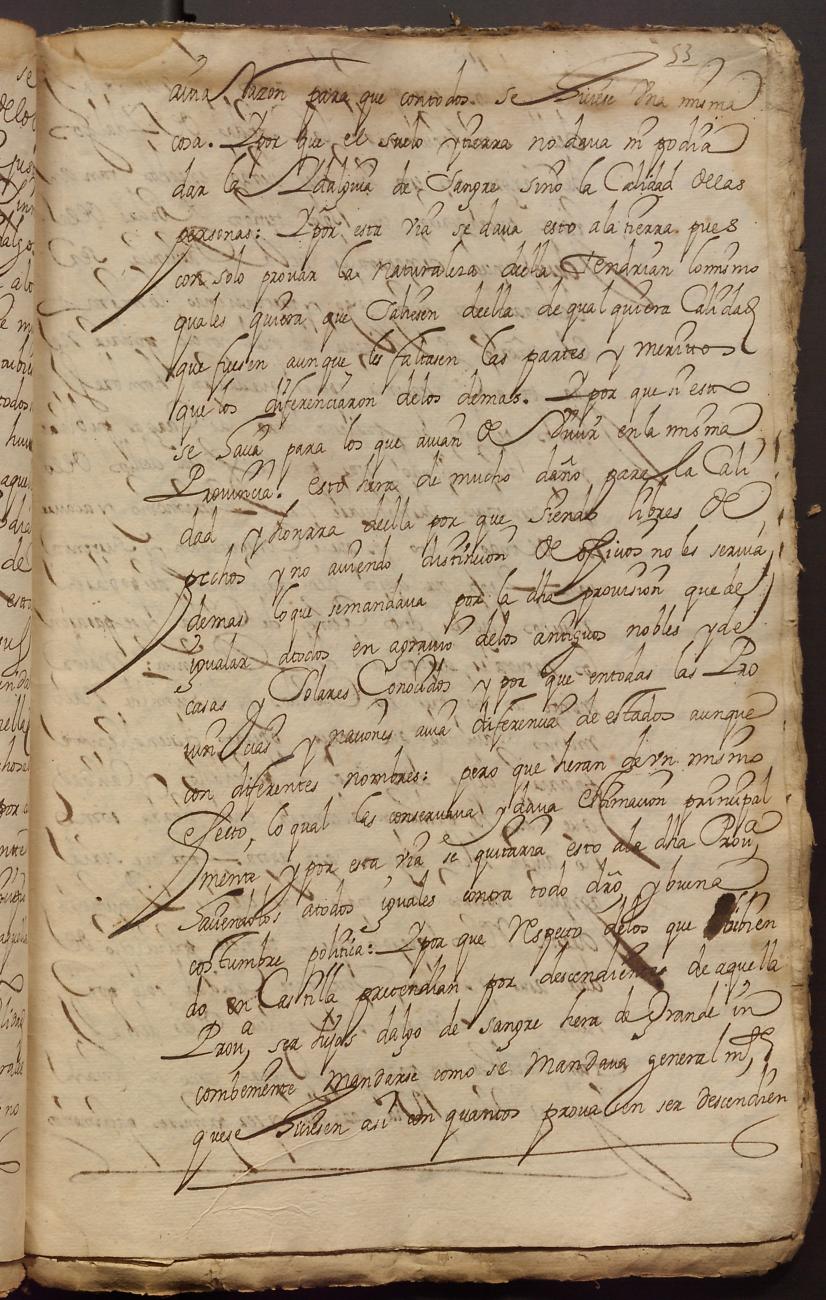 53
avia Razon para que contodos se hiciese Una misma
cosa. Y por que el suelo y tierra no dava ni podia
dar la Hidalguia de Sangre sino la Calidad de las
personas: Y por esta via se dava esto ala tierra pues
con solo provar la naturaleza della Tendrian lo mismo
quales quiera que saliesen della de qual quiera Calidad
que fuesen aunque les faltasen las partes y meritos
que los diferenciaron delos demas. Y por que si esto
se hacia para los que avian de Vivir en la misma
Provincia. esto sera de mucho daño para la Cali
dad y honrra della por que siendo libres de
pechos y no aviendo distincion de oficios no les servia
demas lo que semandava por la dha provision que de
ygualar atodos en agravio delos antiguos nobles y de
casas y Solares Conocidos y por que entodas las Pro
vincias y naciones avia diferencia de estados aunque
con diferentes nombres: pero que heran de vn mismo
efecto, lo qual las conservava y dava estimacion principal
mente y por esta via se quitaria esto ala dha Prova
haciendolos atodos yguales contra todo dro y buena
costumbre politica: Y por que Respecto delos que vibien
do en Castilla pretendian por descendientes de aquella
Prova, ser hijos dalgo de sangre hera de Grande in
combeniente mandarse como se Mandava general mte
quese hiciesen asi con quantos provasen ser descendien